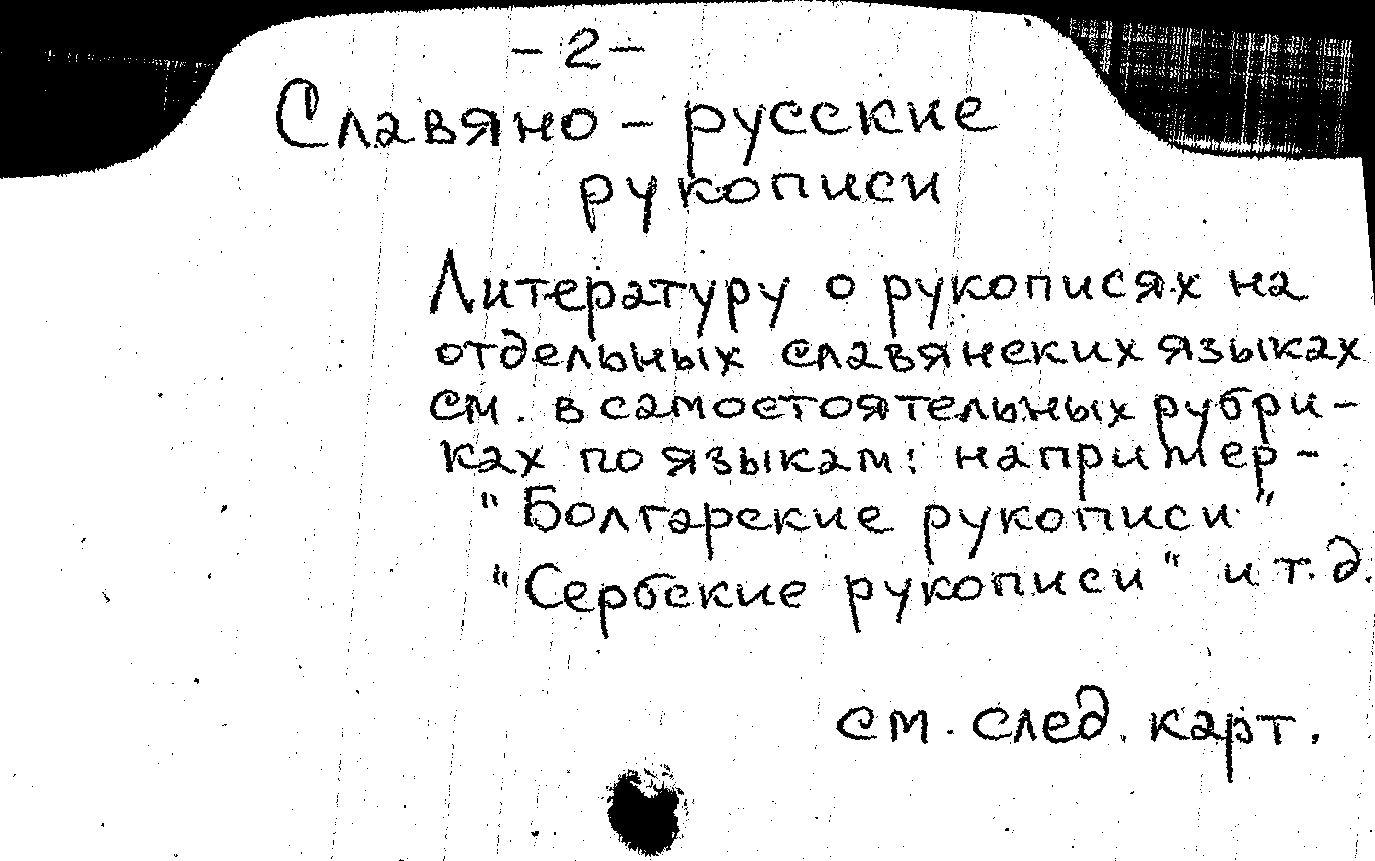 - 2 -
Славяно - русские
рукописи
Литературу о рукописях на
отдельных славянских языках
см. в самостоятельных рубри-
ках по языкам: например -
"Болгарские рукописи"
"Сербские рукописи" и т.д.
см. след. карт.